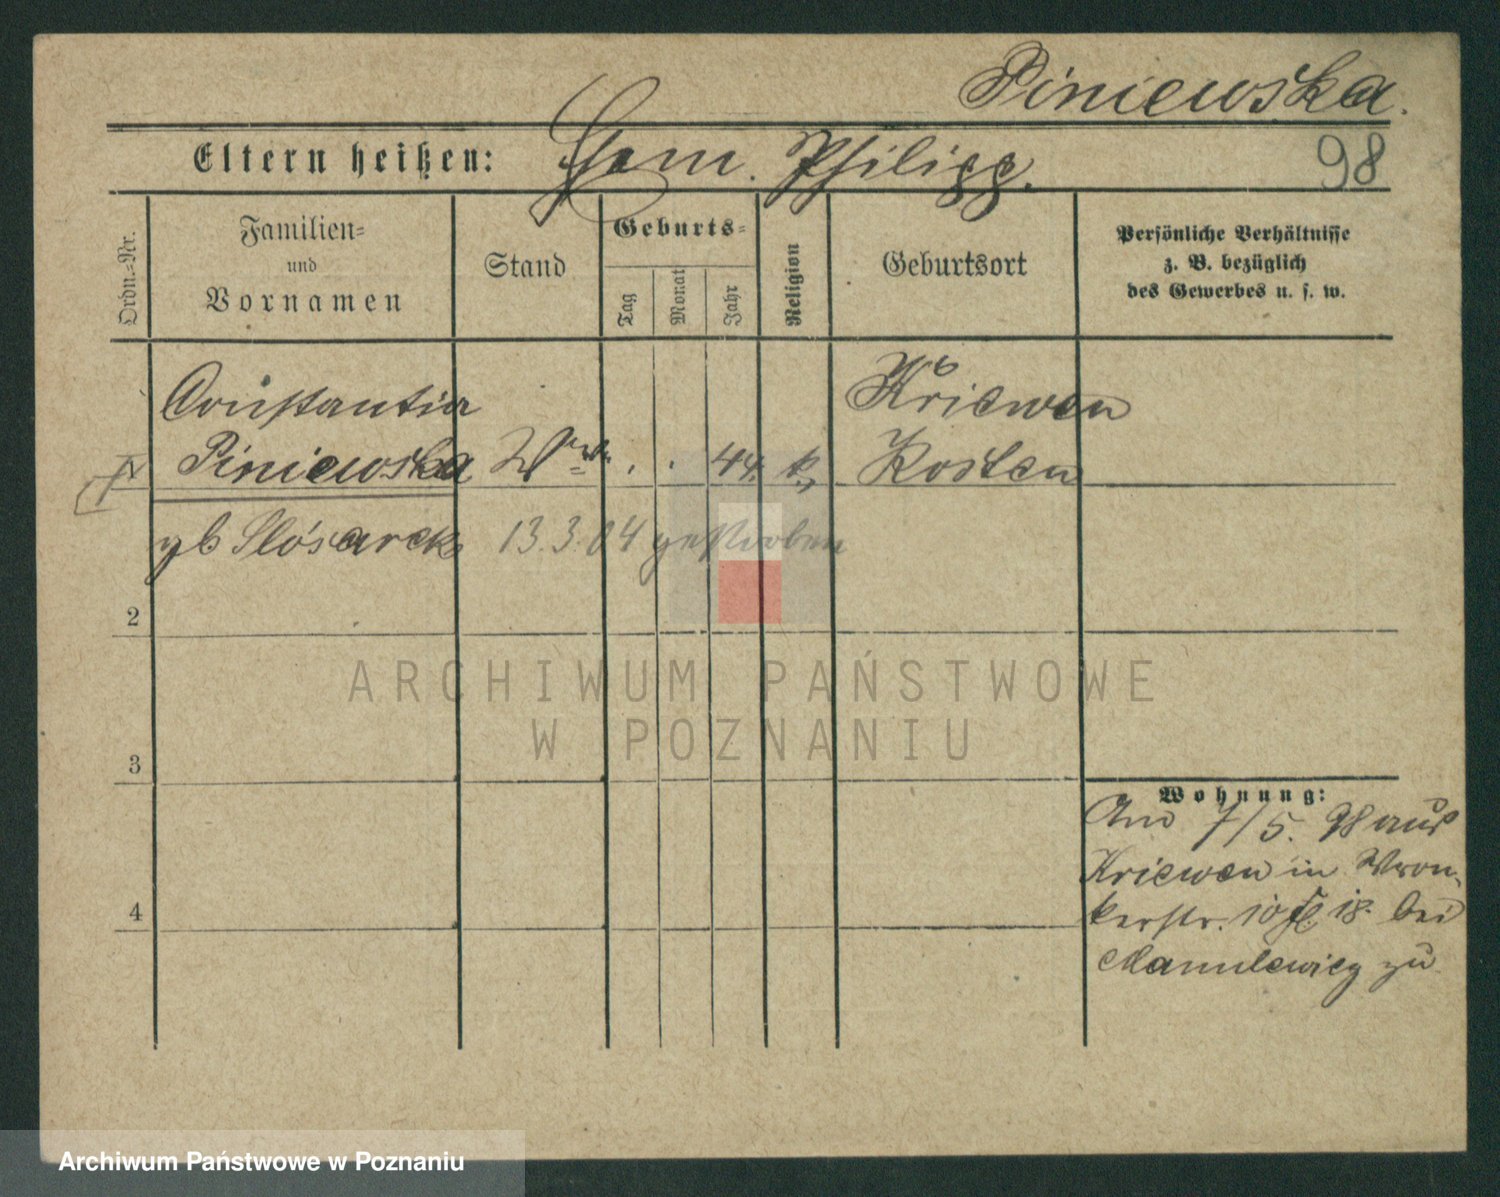 Piniewska.
Eltern heißen: Ehem. Philipp.
98
Ordn.=Nr.
Familien=
und
Vornamen
Stand
Geburts=
Tag
Monat
Jahr
Religion
Geburtsort
Persönliche Verhältnisse
z. B. bezüglich
des Gewerbes u. s. w.
Constantia
Kriewen
Piniewska Wwe . . 44. k. Kosten
gb Slósarek 13.3.04 gestorben
2
ARCHIWUM PAŃSTWOWE
W POZNANIU
3
Wohnung:
7/5. 98 aus
Kriewen in Wron-
kerstr. 10 18. bei
zu
4
Archiwum Państwowe w Poznaniu